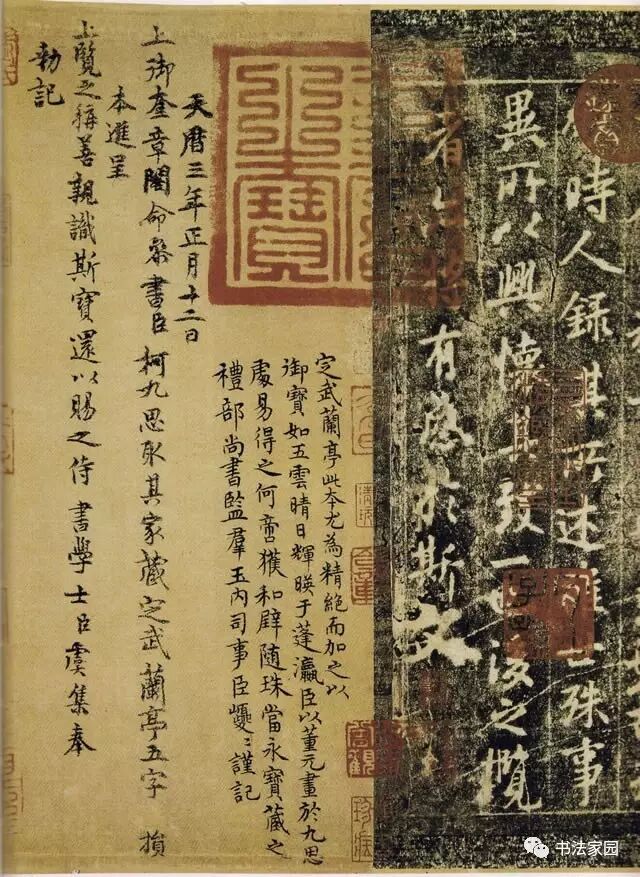 時人録其所述雖世殊事
異所以興懷其致一也後之攬
者亦將有感於斯文
定武蘭亭此本尤為精絶而加之以
御寶如五雲晴日輝暎于蓬瀛臣以董元畫於九思
處易得之何啻獲和辟隨珠當永寶藏之
禮部尚書監羣玉内司事臣巙〻謹記
天曆三年正月十二日
上御奎章閣命參書臣柯九思取其家藏定武蘭亭五字損
本進呈
上覽之稱善親識斯寶還以賜之侍書學士臣虞集奉
勑記
书法家园